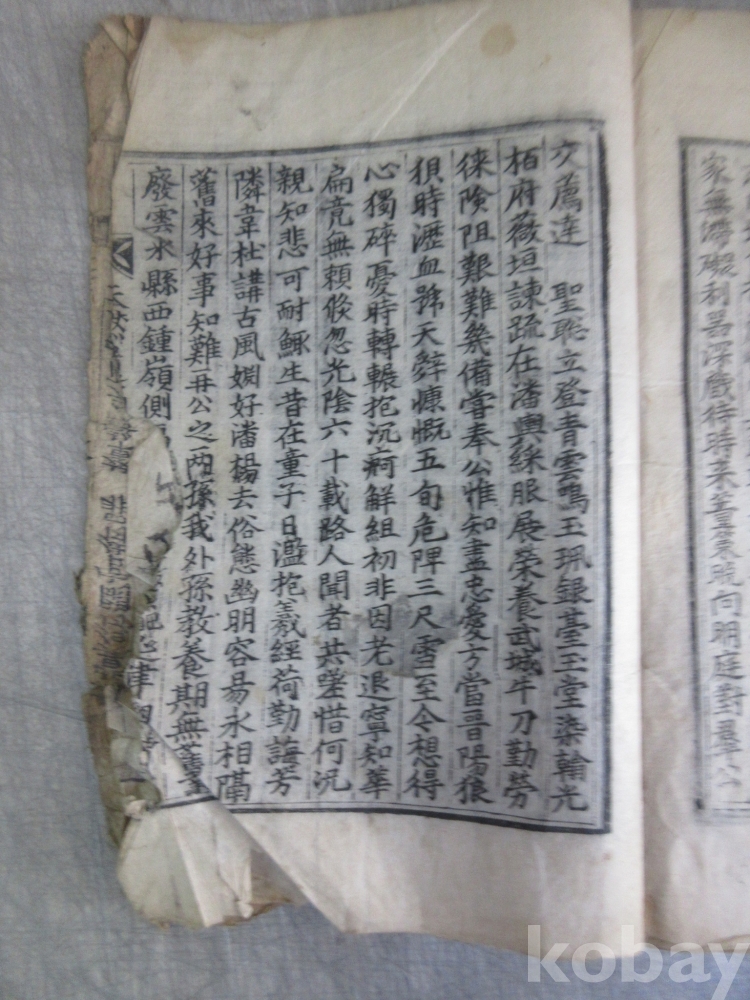 家無滯礙利器深藏待時來蓍策曉向明庭對舉公
文薦達 聖聡立登青雲鳴玉珮銀臺玉堂染翰光
栢府薇垣諫疏在潘輿綵服展榮養武城牛刀勤勞
徠險阻艱難幾備嘗奉公惟知盡忠愛方當晋陽狼
狽時瀝血號天辭慷慨五旬危陴三尺雪至今想得
心獨碎憂時轉輾抱沉痾解組初非因老退寧知華
扁竟無賴倐忽光陰六十載路人聞者共嗟惜何況
親知悲可耐鯫生昔在童子日濫抱羲經荷勤誨芳
隣韋杜講古風姻好潘楊去俗態幽明容易永相隔
舊來好事知難再公之兩孫我外孫教養期無舊
廢雲水縣西鍾嶺側 津
kobay